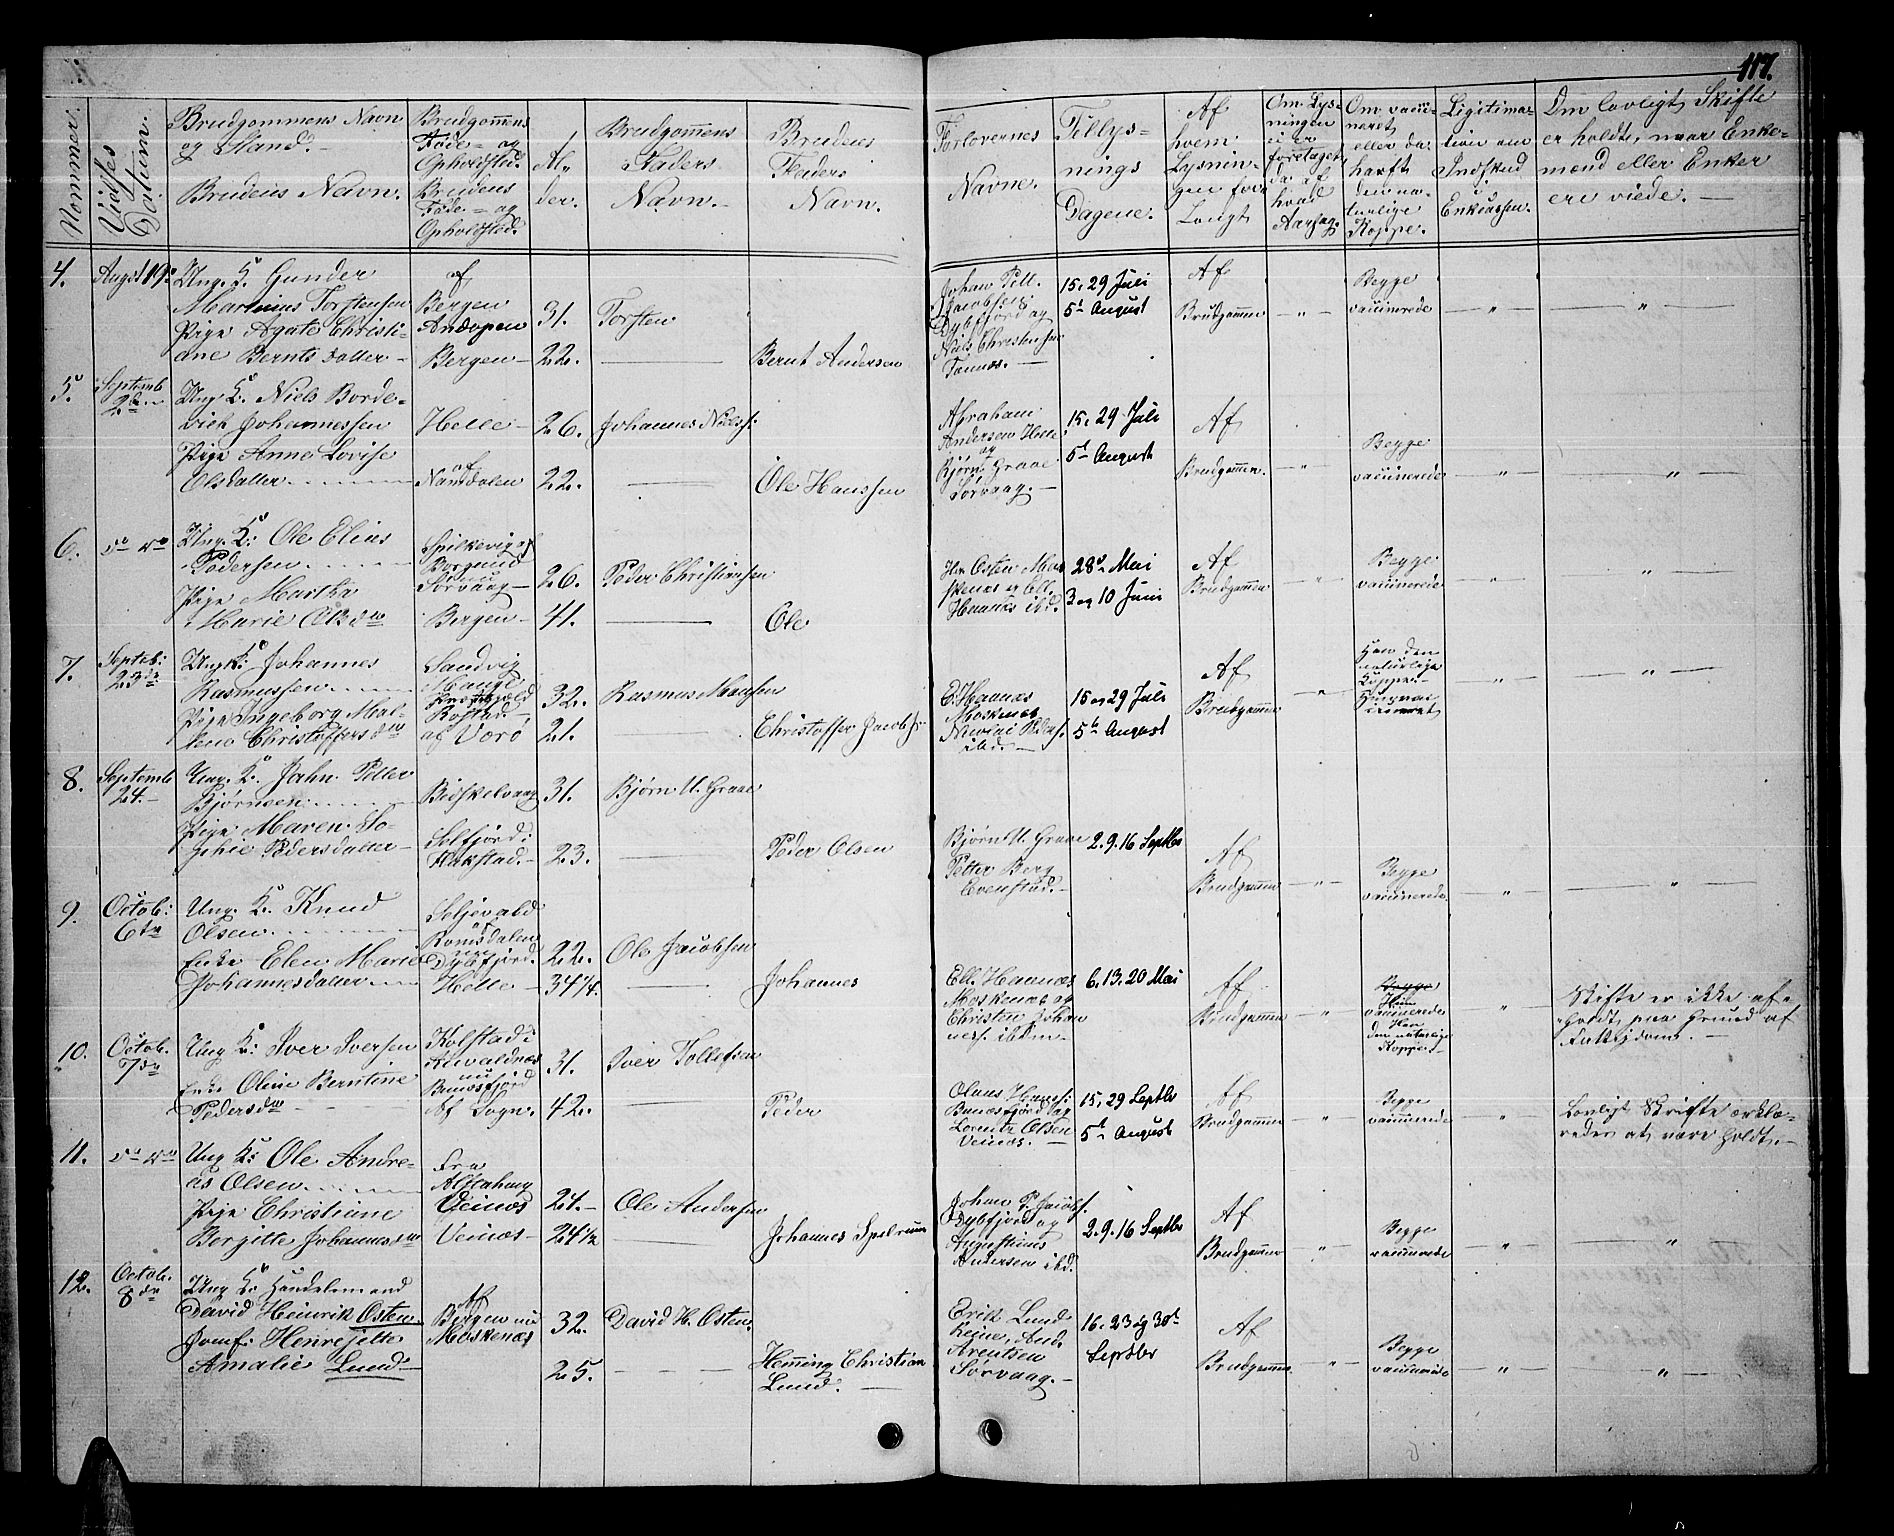 117.
Nommer.
Vielses Datum.
Brudgommens Navn
og Stand.
Brudens Navn.
Brudgommens
Føde- og
Opholdsted.
Brudens
Føde- og
Opholdsted.
Al-
der.
Brudgommens
Faders
Navn.
Brudens
Faders
Navn.
Forlovernes
Navne.
Tillys-
nings
Dagene.
Af
hvem
Lysnin-
gen for-
langt
Om Lys-
ningen
ei er
foretaget
da af
hvad
Aarsag
Om vacci-
neret
eller da
havft
den na-
turlige
Koppe.
Ligitima-
tion om
Indskud
i
Enkecassen.
Om lovligt Skifte
er holdt, naar Enke-
mænd eller Enker
ere viede.
4. August 19de
Ung. K. Gunder
Martinius Torstensen
Pige Agate Christi-
ane Bernts datter
af
Bergen
Andopen
Bergen
31.
22.
Torsten
Bernt Andersen
Johan Pett.
Jacobsen
Dybfjord og
Niels Christensen
15. 29 Juli
5te August
Af
Brudgommen
Begge
vaccinerede
5. Septemb 2den
Ung. K. Niels Borde-
vich Johannessen
Pige Anne Lovise
Olsdatter
Helle
af
Namdalen
26.
22.
Johannes Nielss:
Ole Hanssen
Abraham
Andersen Helle
og
Bjørn Graae
Sørvaag.
15. 29 Juli
5te August
Af
Brudgommen.
Begge
vaccinerede
6. do do
Ung. K: Ole Elias
Pedersen
Pige Martha
Marie Olsdtr
Spilkevig af
Borgund
nu
Sørvaag
Bergen
26.
41.
Peder Christiansen
Ole
Hr Osten Mos-
kenes og Ell.
Haanæs ibd.
28de Mai
3 og 10 Juni
Af
Brudgommen
Begge
vaccinerede
7. Septeb: 23de
Ung K: Johannes
Rasmussen
Pige Ingeborg Mal-
lene Christoffersdtr
Sandvig
Rostad
af Værø
32.
21.
Rasmus Monsen
Christoffer Jacobs:
E. Haanæs
Moskenæs
Nicolai Peders.
ibd.
15 og 29 Juli
5te August
Af
Brudgommen
Han den
naturlige
Kopper.
Hun vac-
cineret
8. Septemb 24.
Ung. K. Jahn Petter
Bjørnsen
Pige Maren So-
phie Pedersdatter
Bidskelvaag
Selfjord:
31.
23.
Bjørn U. Graae
Peder Olsen
Bjørn U. Graae
Petter Berg
Evenstad.
2. 9. 16 Septbr
Af
Brudgommen
Begge
vaccinerede
9. Octob: 6te
Ung. K. Knud
Olsen
Enke Elen Marie
Johannesdatter
Romsdalen
Dybfjord.
Helle
22.
34 1/4.
Ole Jacobsen
Johannes
Ell. Haanæs
Moskenæs og
Christen Johan
nes. ibdm
6. 13. 20 Mai
Af
Brudgommen
Begge
Hun
vaccinerede
Han
den naturlige
Kopper.
Skifte er ikke af-
holdt paa Grund af
Fattigdom.
10. Octob. 7de
Ung K: Iver Iversen
Enke Oline Berntine
Pedersdtr
Kolstad i
nu
Bunæsfjord
Af Sogn.
31.
42.
Iver Tollefsen
Peder
Olaus Hans:
Bunæsfjord og
Lorentz Olsen
Veinæs.
15, 29 Septbr
5te August
Af
Brudgommen
Begge
vaccinerede
Lovligt Skifte erklæ-
redes at være holdt.
11. do do
Ung K: Ole Andre-
as Olsen
Pige Christiane
Bergitte Johannesdtr
Fra
Alstahoug
Veinæs
Veinæs
24.
24 1/2
Ole Andersen
Johannes Spelrem
Johan P. Jacobs.
Dybfjord og
Augustinus
Andersen ibd.
2. 9. 16 Septbr
Af
Brudgommen
Begge
vaccinerede
12. Octob. 8de
Ung K: Handelsmand
David Heinrik Osten
Jomf. Henrejette
Amalie Lund.
Af
Bergen nu
Moskenæs
32.
25.
David H. Osten.
Hemming Christian
Lund.
Erik Lund
Reine, And.
Arentsen
Sørvaag.
16. 23 og 30te
Septbr
Af
Brudgommen
Begge
vaccinerede